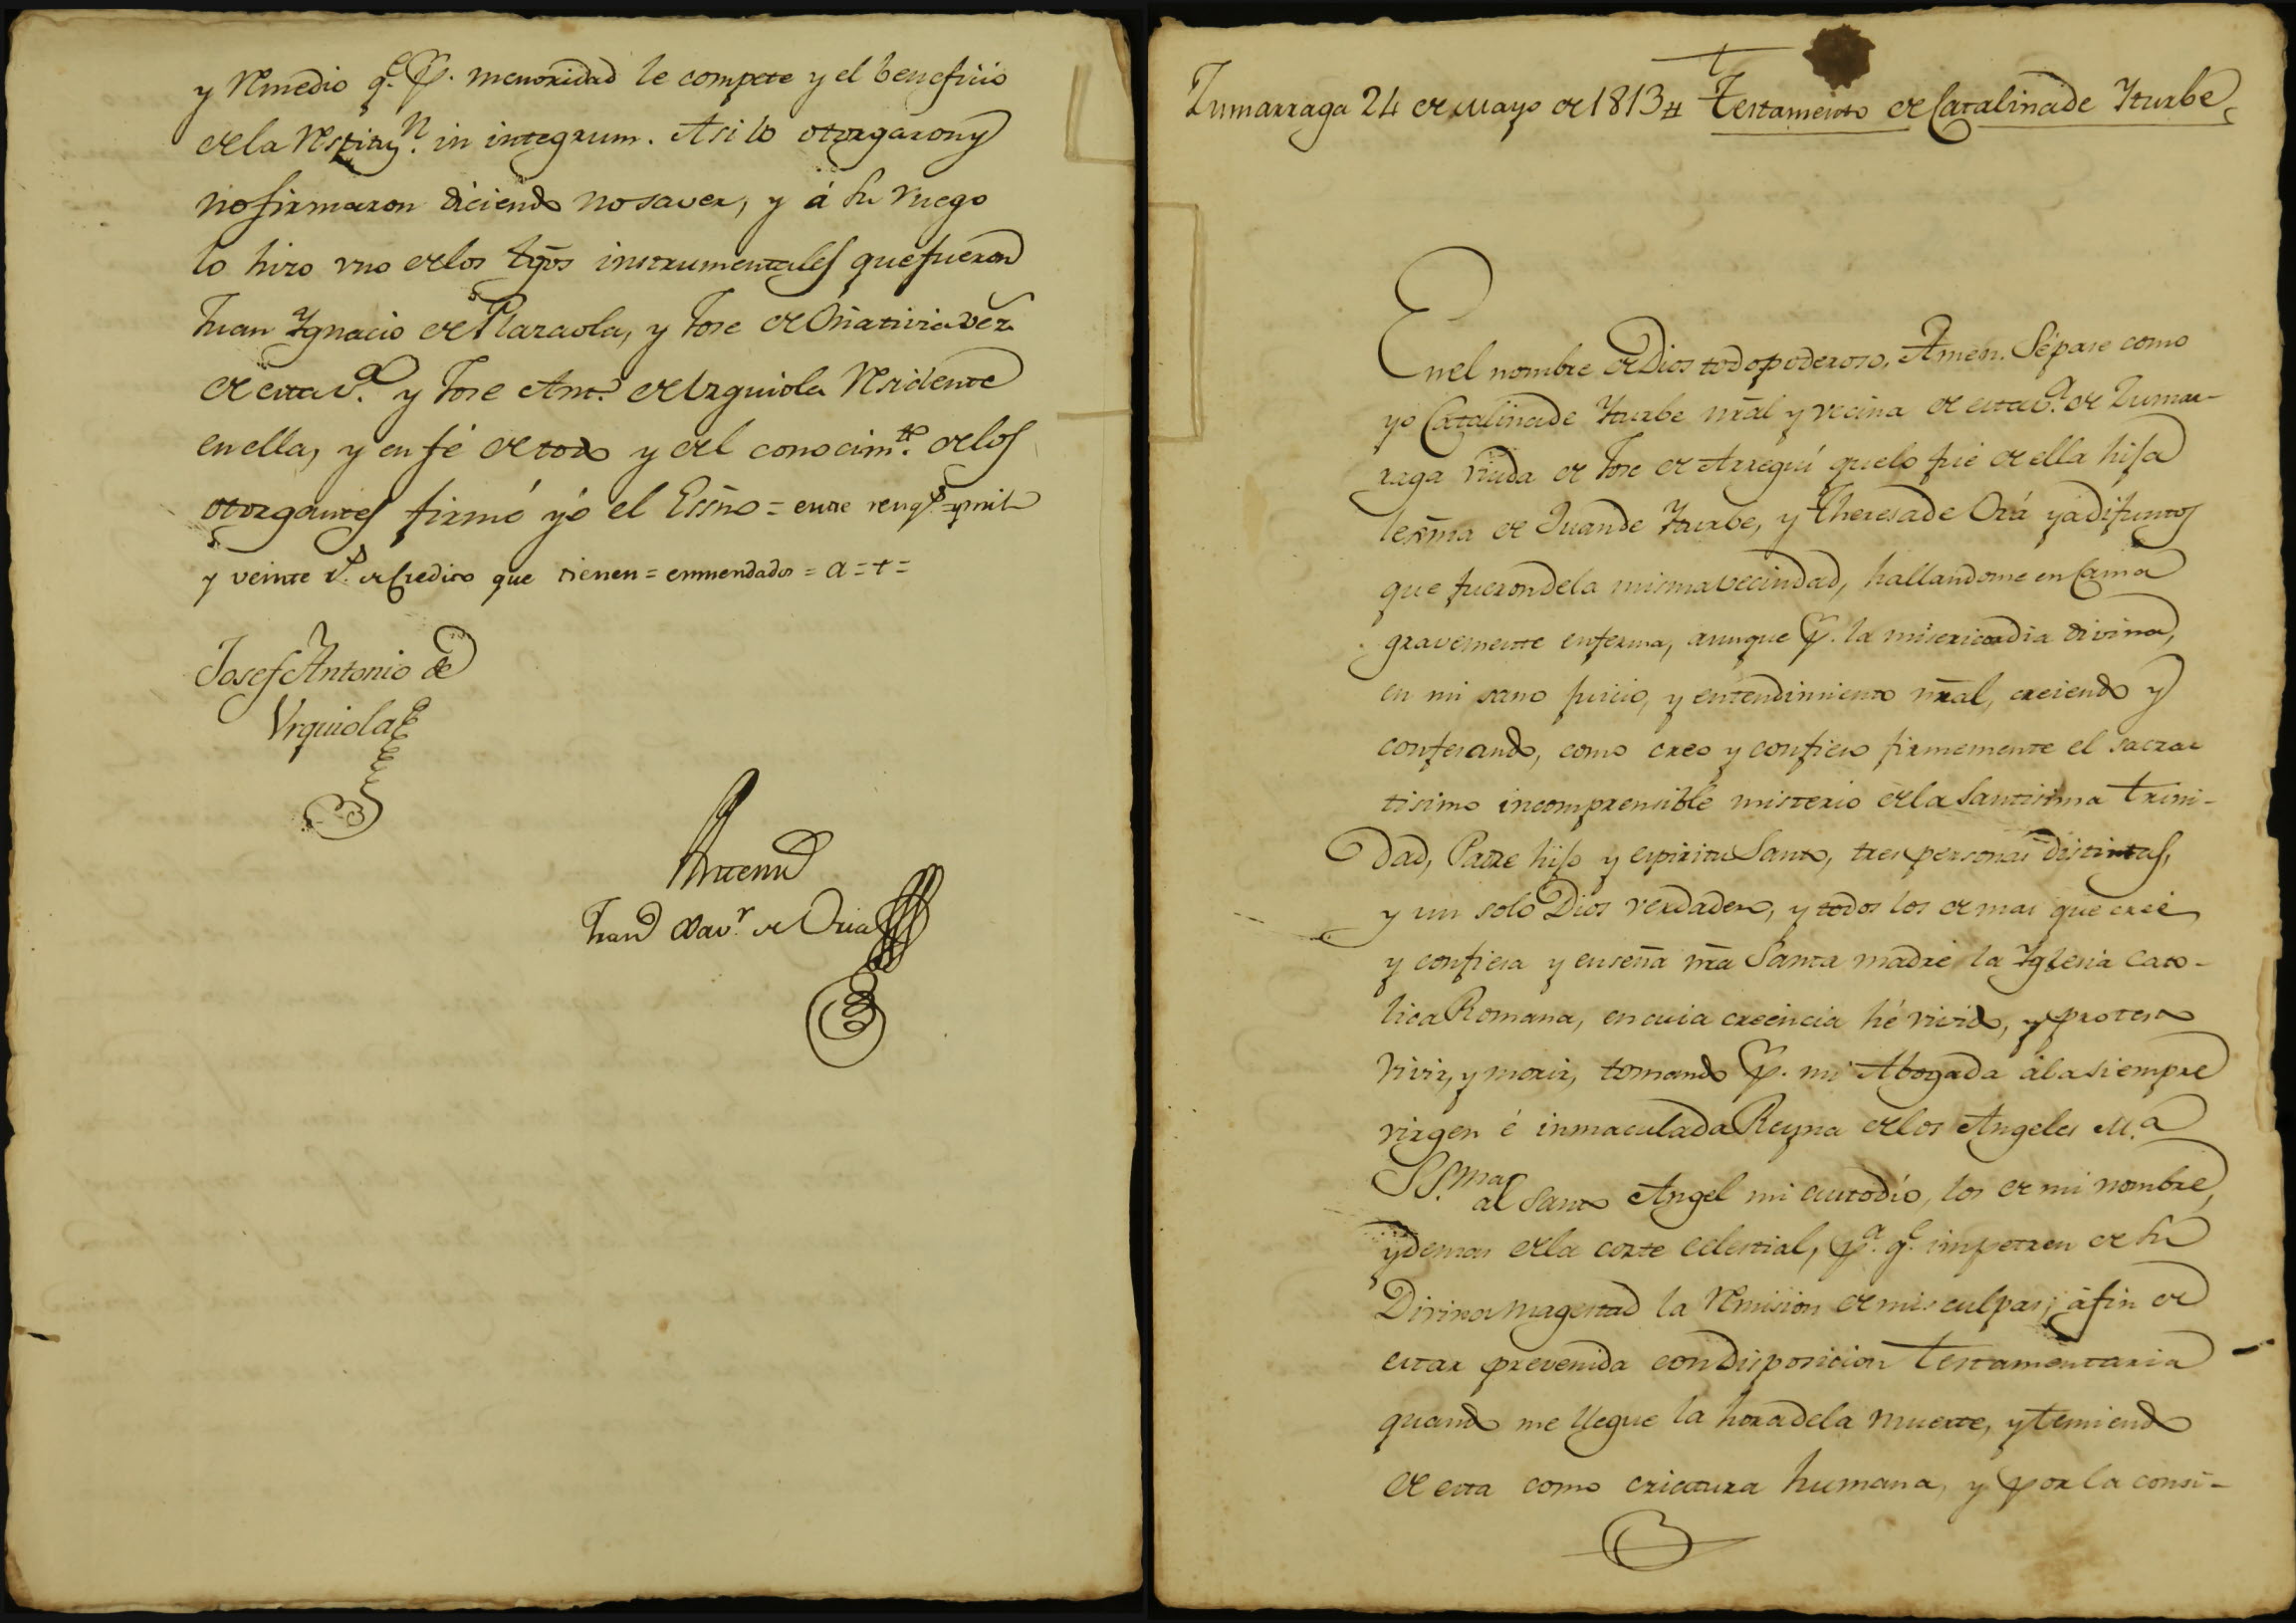 y Remedio q.e p.r menoridad le compete y el beneficio
de la Restituz.n in integrum. Asi lo otorgaron y
no firmaron diciendo no saver, y á su ruego
lo hizo uno de los tgos instrumentales que fueron
Juan Ygnacio de Plazaola, y Jose de Oñativia vez.s
de esta v.a y Jose Ant.o de Urquiola Residente
en ella, y en fé de todo y del conocim.to de los
otorgantes firmó yó el Essño = entre reng.s = y mil
y veinte r.s de Credito que tienen = enmendados = a = t =
Josef Antonio de
Urquiola
Antemi
Fran.co Xav.r de Oria
Zumarraga 24 de Mayo de 1813 # Testamento de Catalina de Yturbe
En el nombre de Dios todo poderoso, Amen. Sépase como
yo Catalina de Yturbe nral y vecina de esta v.a de Zumar-
raga viuda de Jose de Arregui que lo fue de ella hija
lexma de Juan de Yturbe, y Theresa de Orá ya difuntos
que fueron de la misma vecindad, hallandome en Cama
gravemente enferma, aunque p.r la misericordia divina,
en mi sano juicio, y entendimiento nral, creiendo y
confesando, como creo y confieso firmemente el sacra
tisimo incomprensible misterio de la Santisima Trini-
dad, Padre hijo y espiritu Santo, tres personas distintas,
y un solo Dios verdadero, y todos los demas que creé
y confiesa y enseña nra Santa madre la Yglesia Cato-
lica Romana, en cuia creencia hé vivido, y protesto
vivir, y morir, tomando p.r mi Abogada á la siempre
virgen é inmaculada Reyna de los Angeles M.a
SS.ma al Santo Angel mi custodio, los de mi nombre,
y demas de la corte celestial, p.a q.e impetren de su
Divina magestad la Remision de mis culpas; á fin de
estar prevenida con disposicion testamentaria
quando me llegue la hora de la muerte, y temiendo
de esta como criatura humana, y por la consi-